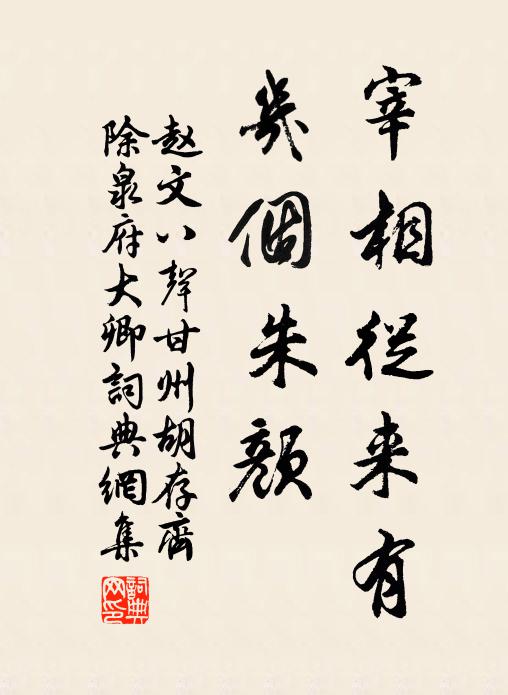 宰相從来有
幾個朱顏
赵文八聲甘州胡存齊
除泉府大卿詞典網集
詞典
网印